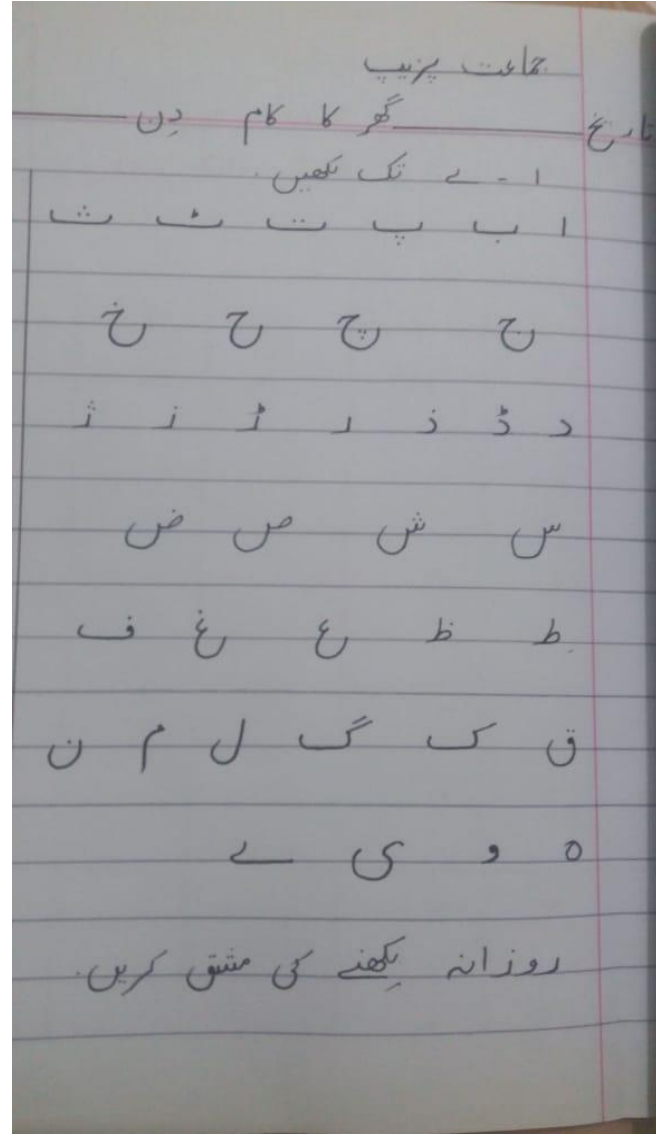 جماعت پریپ
تاریخ گھر کا کام دِن
ا - ے تک لکھیں.
ا ب پ ت ٹ ث
ج چ ح خ
د ڈ ذ ر ڑ ز ژ
س ش ص ض
ط ظ ع غ ف
ق ک گ ل م ن
ہ و ی ے
روزانہ لِکھنے کی مشق کریں.